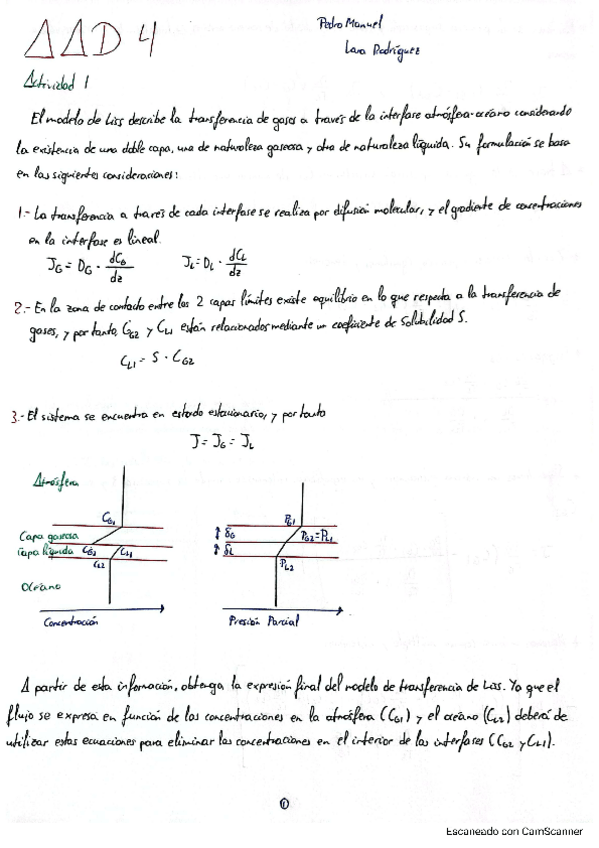 AAD 4
Pedro Manuel
Lara Rodríguez
Actividad 1
El modelo de Liss describe la transferencia de gases a través de la interfase atmósfera-océano considerando
la existencia de una doble capa, una de naturaleza gaseosa y otra de naturaleza líquida. Su formulación se basa
en las siguientes consideraciones:
1.- La transferencia a través de cada interfase se realiza por difusión molecular, y el gradiente de concentraciones
en la interfase es lineal.
J_G = D_G · dC_G/dz    J_L = D_L · dC_L/dz
2.- En la zona de contacto entre las 2 capas límites existe equilibrio en lo que respecta a la transferencia de
gases, y por tanto, C_G2 y C_L1 están relacionados mediante un coeficiente de solubilidad S.
C_L1 = S · C_G2
3.- El sistema se encuentra en estado estacionario, y por tanto
J = J_G = J_L
Atmósfera
C_G1
Capa gaseosa
Capa líquida
C_G2
C_L1
C_L2
Océano
Concentración
P_G1
δ_G
δ_L
P_G2 = P_L1
P_L2
Presión Parcial
A partir de esta información, obtenga la expresión final del modelo de transferencia de Liss. Ya que el
flujo se expresa en función de las concentraciones en la atmósfera (C_G1) y el océano (C_L2) deberá de
utilizar estas ecuaciones para eliminar las concentraciones en el interior de las interfases (C_G2 y C_L1).
①
Escaneado con CamScanner